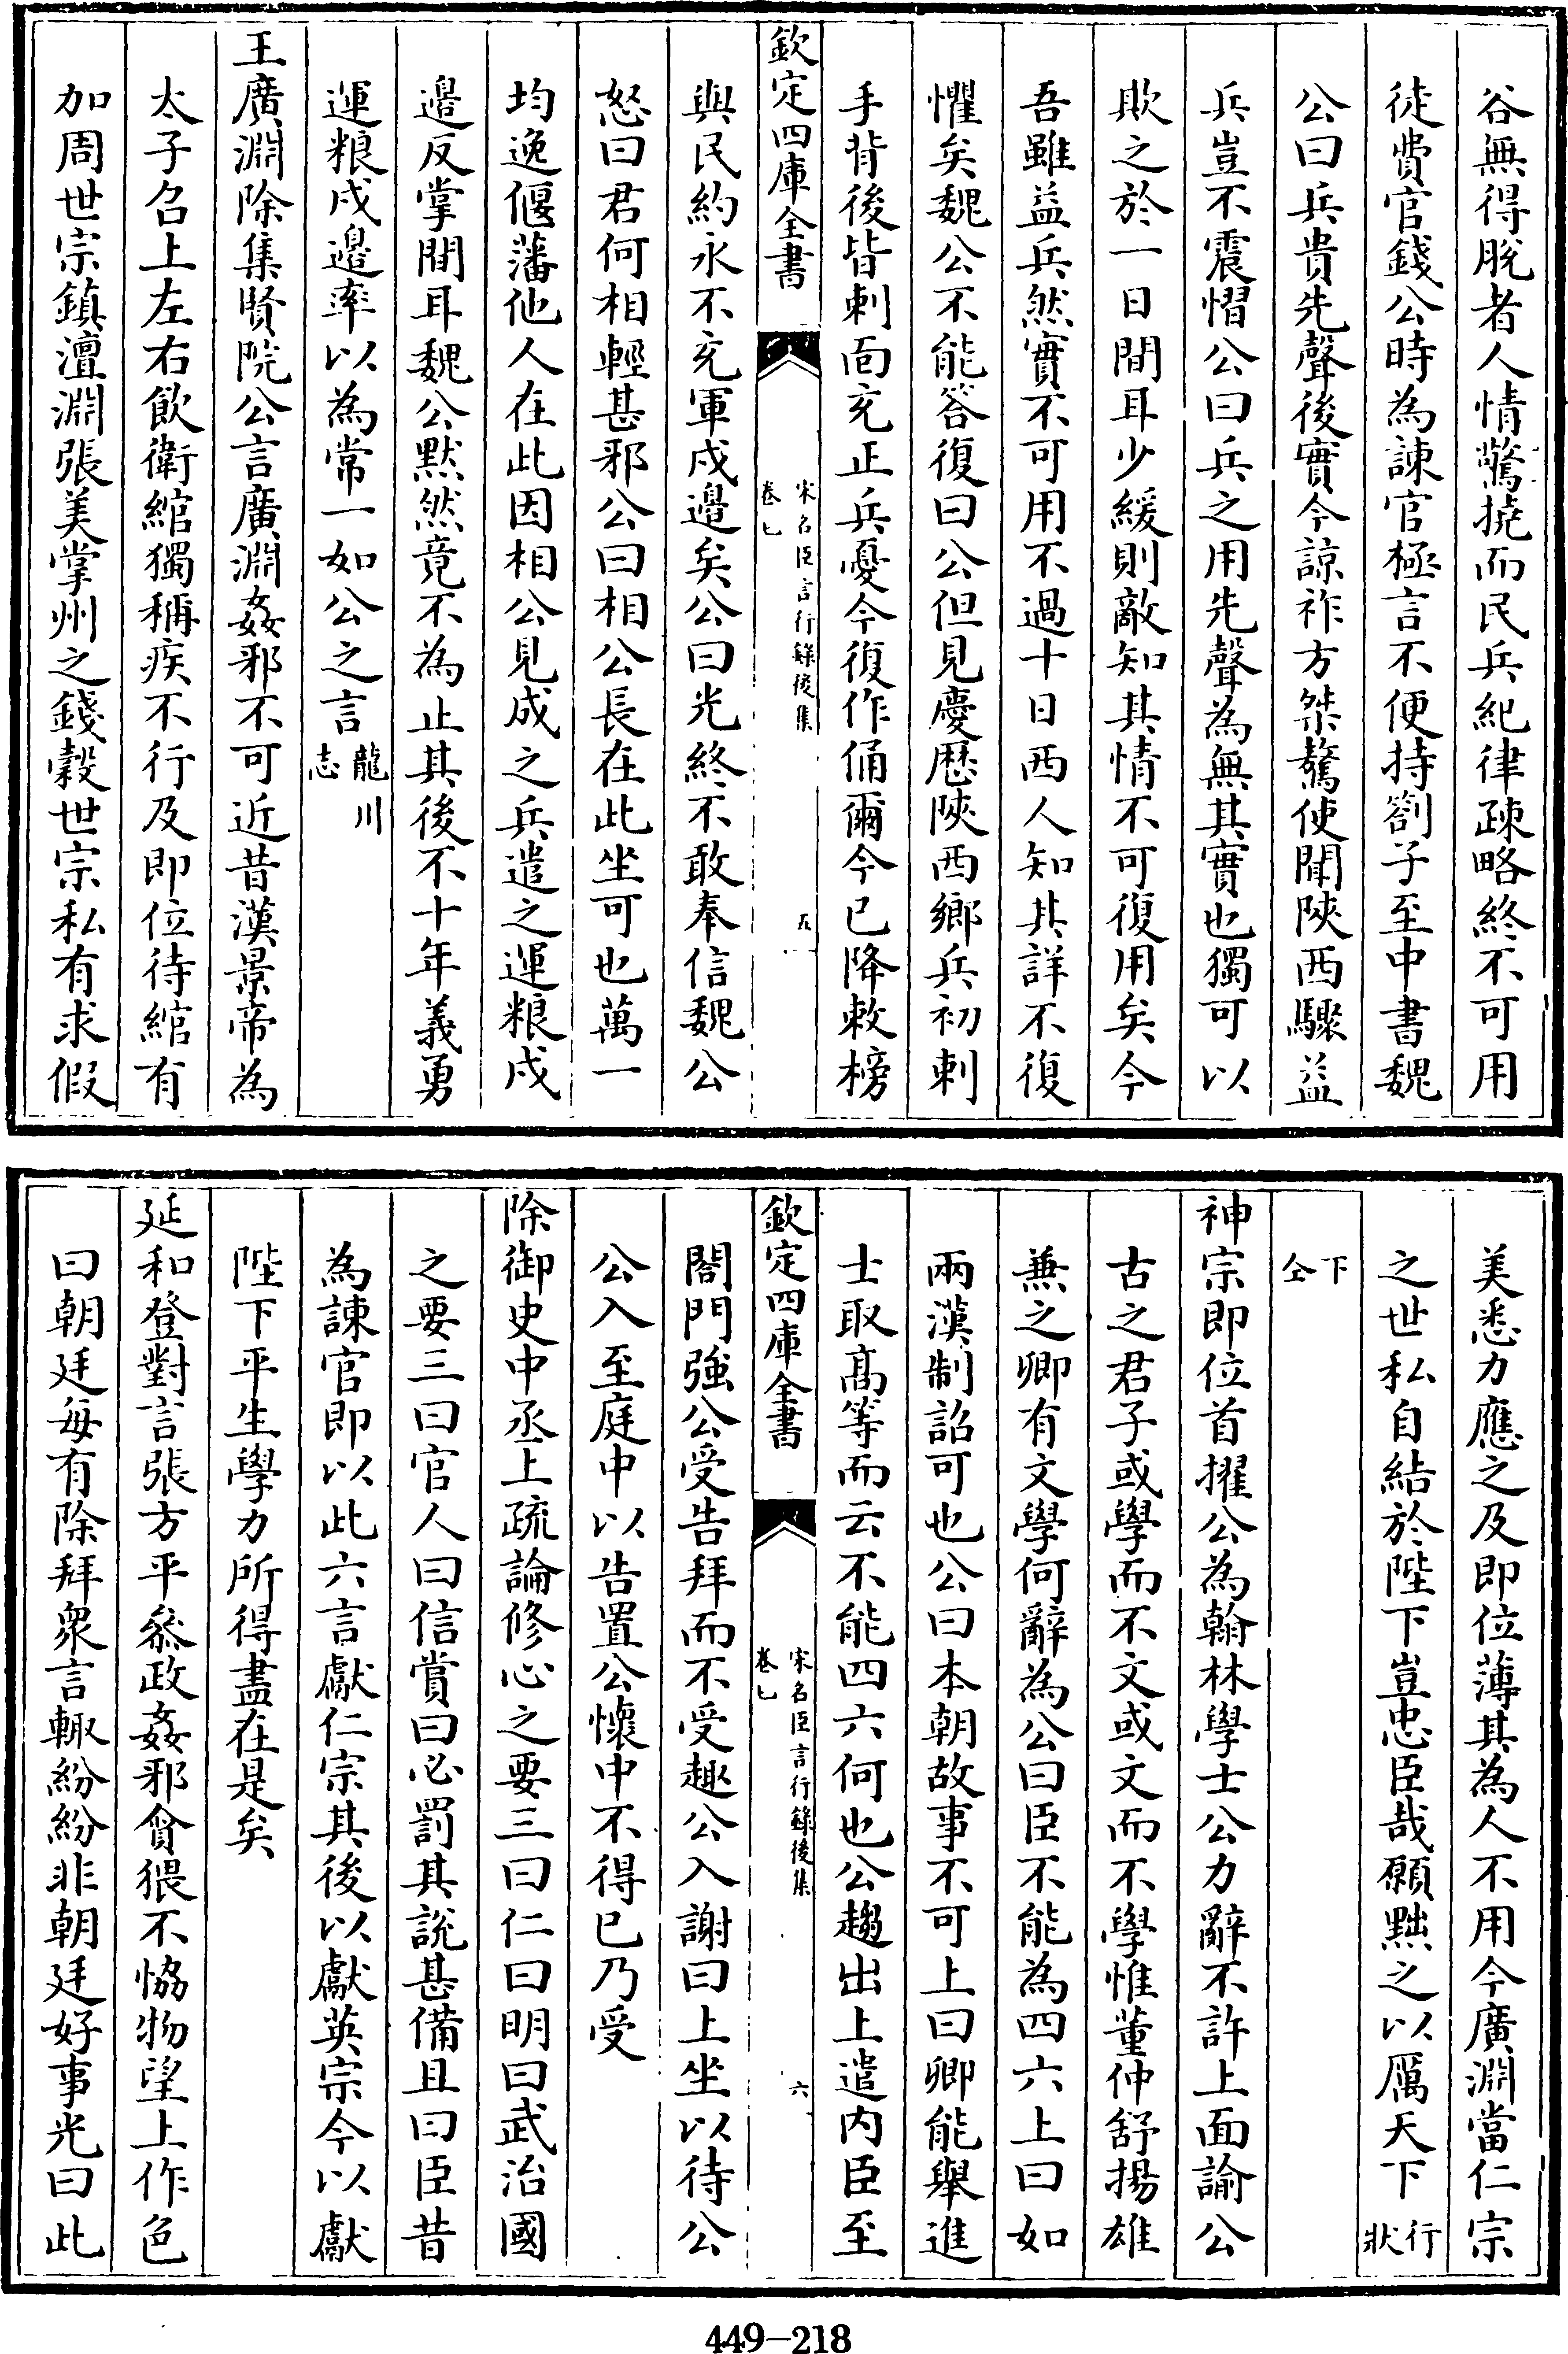 谷無得脫者人情驚撓而民兵紀律疎略終不可用
徒費官錢公時為諫官極言不便持劄子至中書魏
公曰兵貴先聲後實今諒祚方桀驁使聞陝西驟益
兵豈不震慴公曰兵之用先聲為無其實也獨可以
欺之於一日間耳少緩則敵知其情不可復用矣今
吾雖益兵然實不可用不過十日西人知其詳不復
懼矣魏公不能答復曰公但見慶厯陝西鄉兵初刺
手背後皆刺面充正兵憂今復作俑爾今已降敕榜
欽定四庫全書
宋名臣言行錄後集
卷七
五
與民約永不充軍戍邉矣公曰光終不敢奉信魏公
怒曰君何相輕甚邪公曰相公長在此坐可也萬一
均逸偃藩他人在此因相公見成之兵遣之運粮戍
邉反掌間耳魏公黙然竟不為止其後不十年義勇
運粮戍邉率以為常一如公之言龍川
志
王廣淵除集賢院公言廣淵姦邪不可近昔漢景帝為
太子召上左右飲衛綰獨稱疾不行及即位待綰有
加周世宗鎮澶淵張美掌州之錢穀世宗私有求假
美悉力應之及即位薄其為人不用今廣淵當仁宗
之世私自結於陛下豈忠臣哉願黜之以厲天下行
狀
下
仝
神宗即位首擢公為翰林學士公力辭不許上面諭公
古之君子或學而不文或文而不學惟董仲舒揚雄
兼之卿有文學何辭為公曰臣不能為四六上曰如
兩漢制詔可也公曰本朝故事不可上曰卿能舉進
士取髙等而云不能四六何也公趨出上遣内臣至
欽定四庫全書
宋名臣言行錄後集
卷七
六
閤門強公受告拜而不受趣公入謝曰上坐以待公
公入至庭中以告置公懷中不得已乃受
除御史中丞上疏論修心之要三曰仁曰明曰武治國
之要三曰官人曰信賞曰必罰其說甚備且曰臣昔
為諫官即以此六言獻仁宗其後以獻英宗今以獻
陛下平生學力所得盡在是矣
延和登對言張方平叅政姦邪貪猥不恊物望上作色
曰朝廷每有除拜衆言輙紛紛非朝廷好事光曰此
449-218